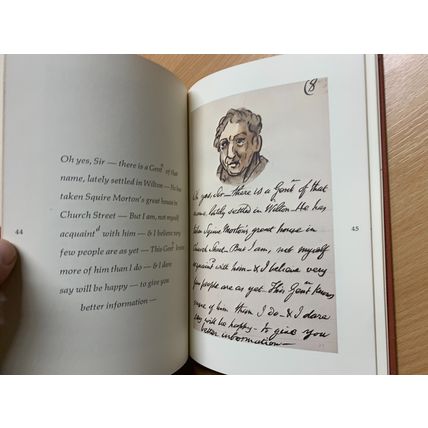 Oh yes, Sir — there is a Gentⁿ of that
name, lately settled in Wilton — He has
taken Squire Morton's great house in
Church Street — But I am, not myself
acquaintᵈ with him — & I believe very
few people are as yet — This Gentⁿ knows
more of him than I do — & I dare
say will be happy — to give you
better information —
44
8
Oh yes, Sir — there is a Gentⁿ of that
name, lately settled in Wilton — He has
taken Squire Morton's great house in
Church Street — But I am, not myself
acquaintᵈ with him — & I believe very
few people are as yet. This Gentⁿ knows
more of him than I do — & I dare
say will be happy — to give you
better information —
45